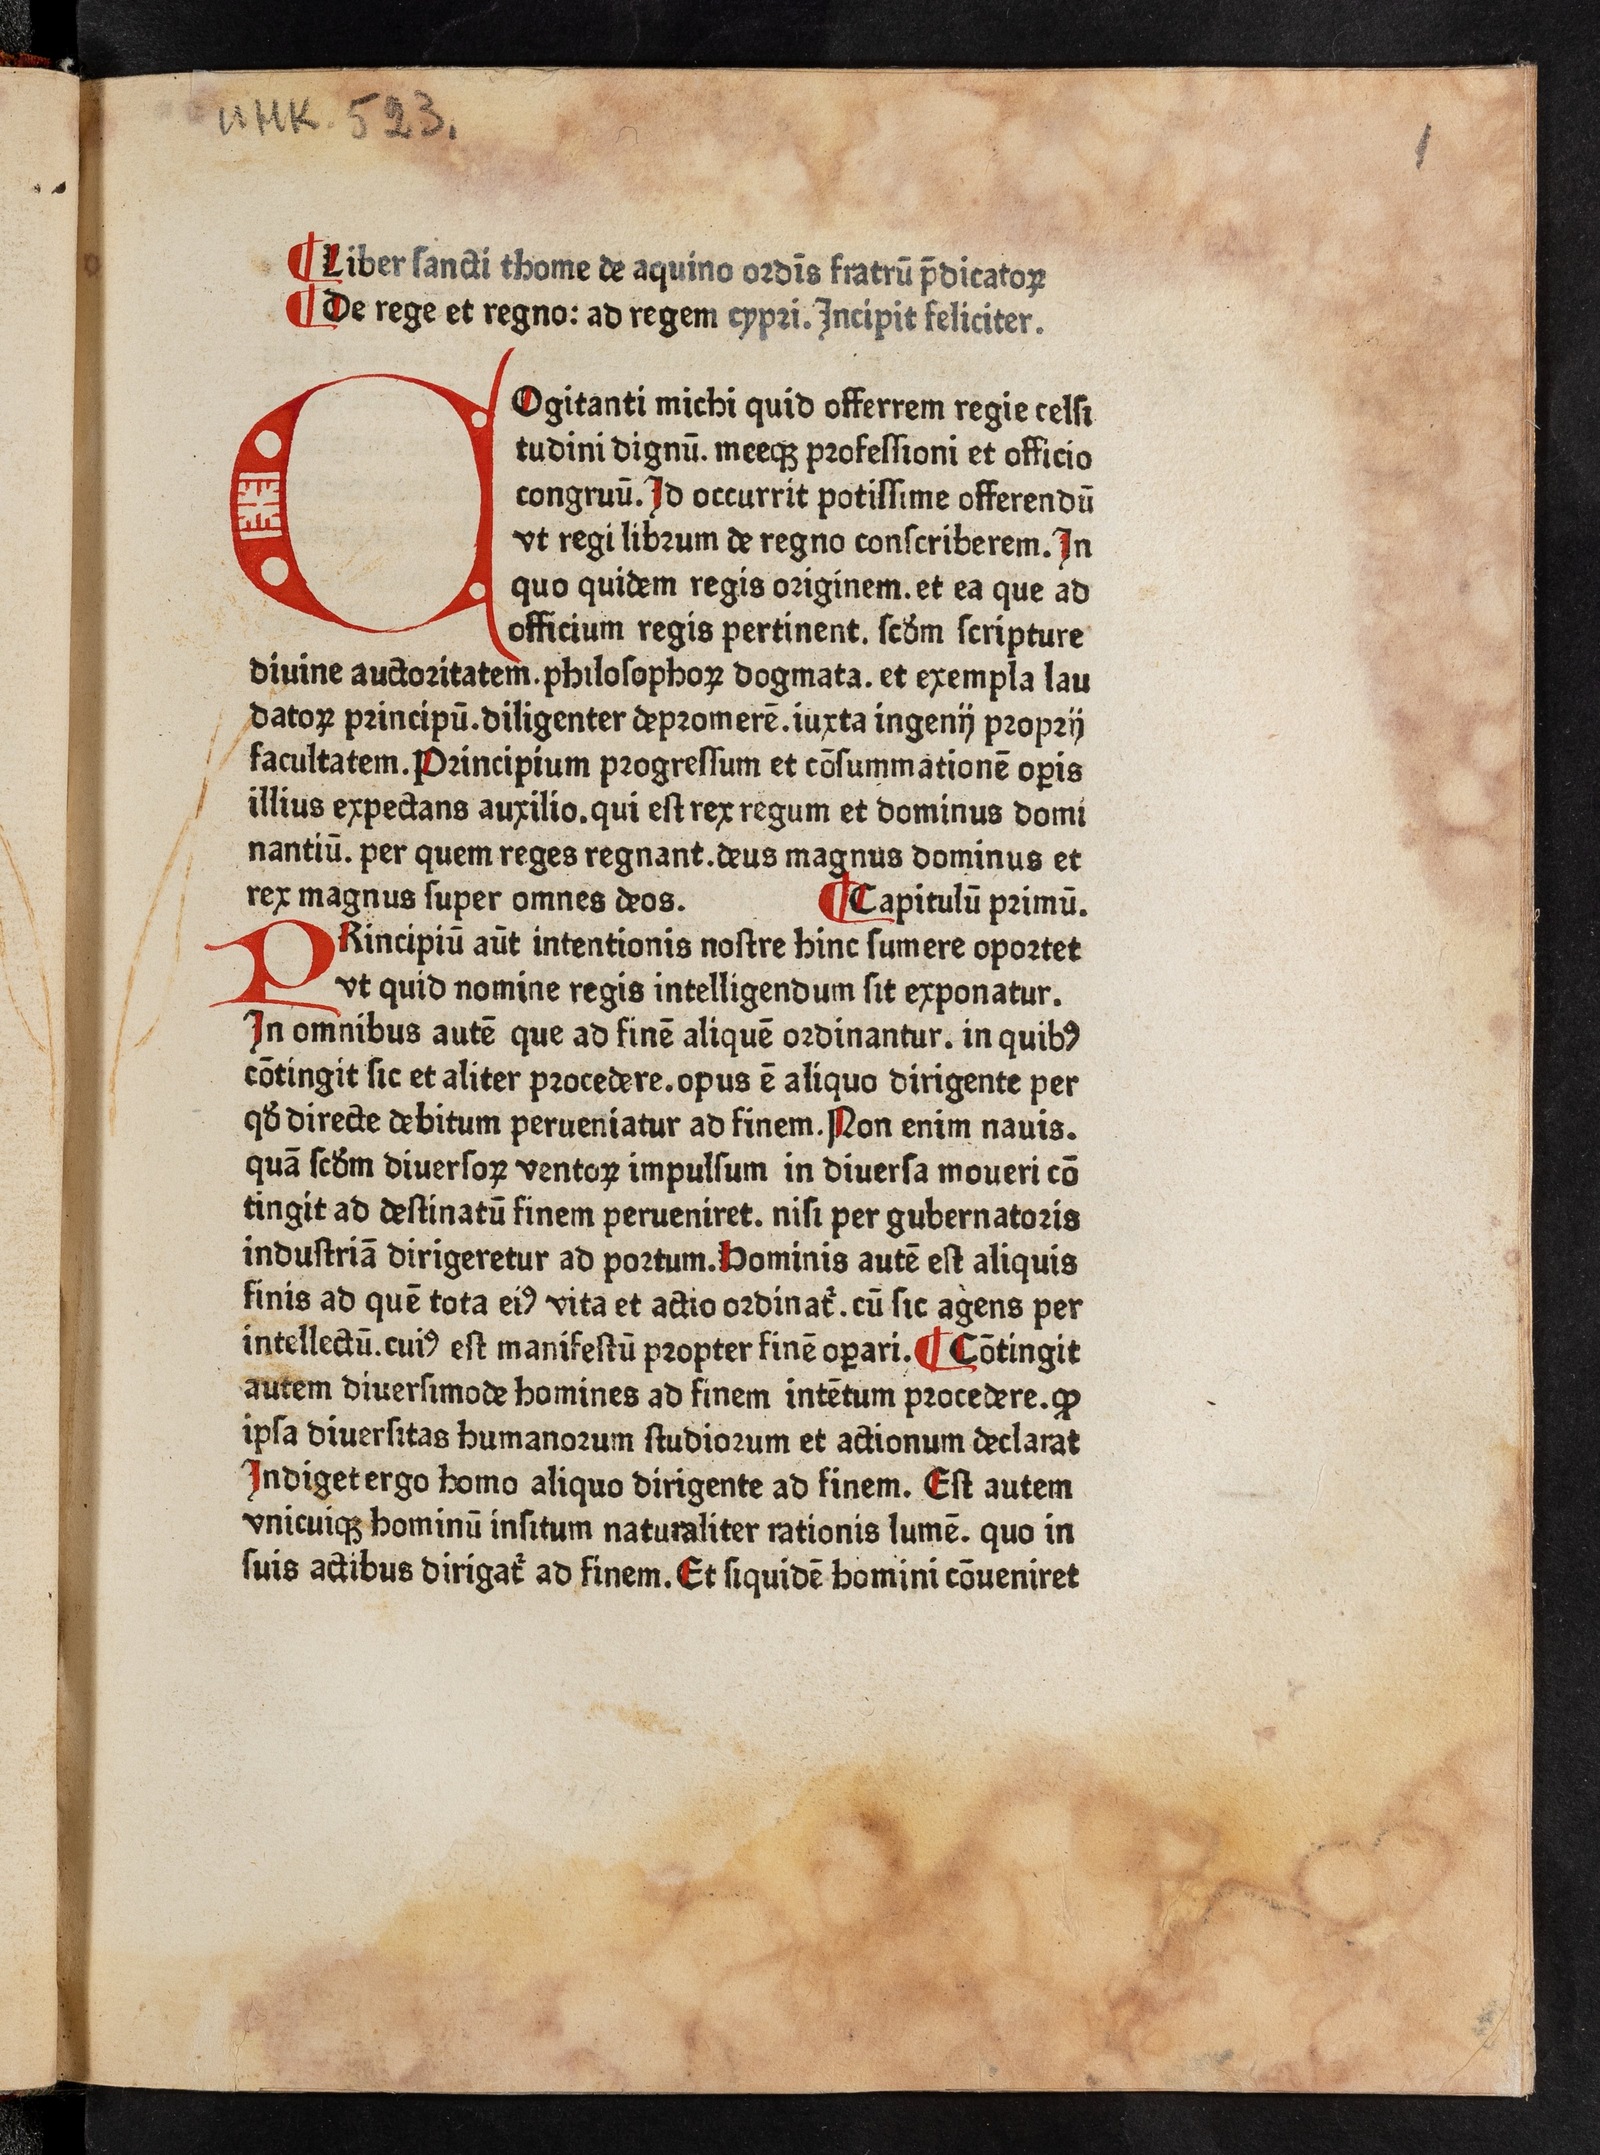 инк. 523.
1
¶ Liber sancti thome de aquino ordīs fratrū p̄dicatoꝝ
¶ De rege et regno: ad regem cypri. Incipit feliciter.
COgitanti michi quid offerrem regie celsi
tudini dignū. meeqꝫ professioni et officio
congruū. Id occurrit potissime offerendū
vt regi librum de regno conscriberem. In
quo quidem regis originem. et ea que ad
officium regis pertinent. scd̓m scripture
diuine auctoritatem. philosophoꝝ dogmata. et exempla lau
datoꝝ principū. diligenter depromerē. iuxta ingenij proprij
facultatem. Principium progressum et cōsummationē oꝑis
illius expectans auxilio. qui est rex regum et dominus domi
nantiū. per quem reges regnant. deus magnus dominus et
rex magnus super omnes deos. ¶ Capitulū primū.
PRincipiū aūt intentionis nostre hinc sumere oportet
vt quid nomine regis intelligendum sit exponatur.
In omnibus autē que ad finē aliquē ordinantur. in quibꝰ
cōtingit sic et aliter procedere. opus ē aliquo dirigente per
qd̓ directe debitum perueniatur ad finem. Non enim nauis.
quā scd̓m diuersoꝝ ventoꝝ impulsum in diuersa moueri cō
tingit ad destinatū finem perueniret. nisi per gubernatoris
industriā dirigeretur ad portum. Hominis autē est aliquis
finis ad quē tota eiꝰ vita et actio ordinat᷑. cū sic agens per
intellectū. cuiꝰ est manifestū propter finē oꝑari. ¶ Cōtingit
autem diuersimode homines ad finem intētum procedere. ꝙ
ipsa diuersitas humanorum studiorum et actionum declarat
Indiget ergo homo aliquo dirigente ad finem. Est autem
vnicuiqꝫ hominū insitum naturaliter rationis lumē. quo in
suis actibus dirigat᷑ ad finem. Et siquidē homini cōueniret